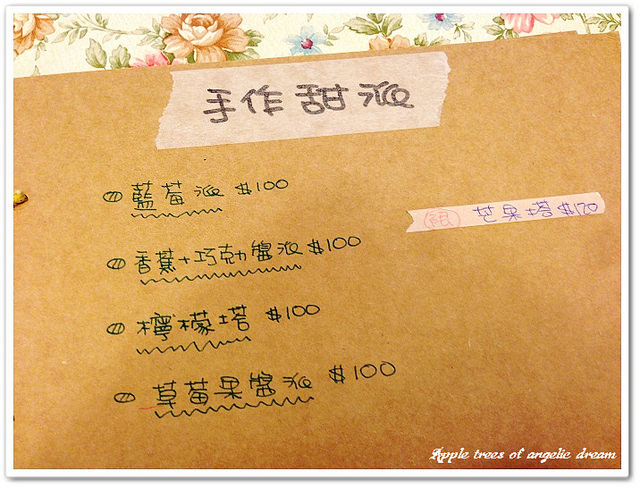 手作甜派
藍莓派 $100
限 芒果塔 $170
香蕉+巧克力鹽派 $100
檸檬塔 $100
草莓果鹽派 $100
Apple trees of angelic dream